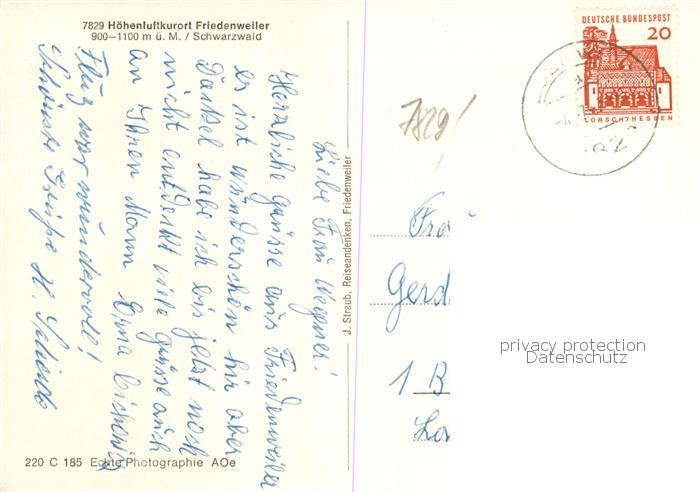 7829 Höhenluftkurort Friedenweiler
900–1100 m ü. M. / Schwarzwald
Liebe Frau Wegner!
Herzliche Grüsse aus Friedenweiler
es ist wunderschön hir aber
Dackel habe ich bis jetzt noch
nicht entdekt viele Grüsse auch
an Ihren Mann Erna
Flug war wundervoll!
Schönste Grüße H.
220 C 185 Echte Photographie AOe
J. Straub, Reiseandenken, Friedenweiler
DEUTSCHE BUNDESPOST
20
LORSCH/HESSEN
7829
Gerd
1 B
privacy protection
Datenschutz